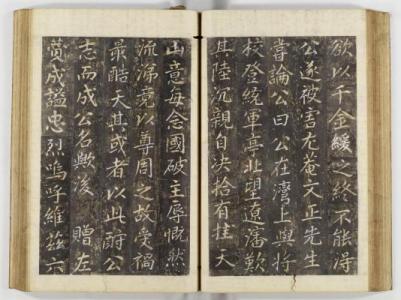 欲以千金緩之終不能得
公遂被害尤菴文正先生
嘗論公曰公在灣上與將
校登統軍亭北望遼瀋歎
其陸沉親自決拾有挂天
山意每念國破主辱慨然
流涕竟以尊周之故受禍
最酷天其或者以此酬公
志而成公名歟後 贈左
贊成謚忠烈嗚呼維玆六